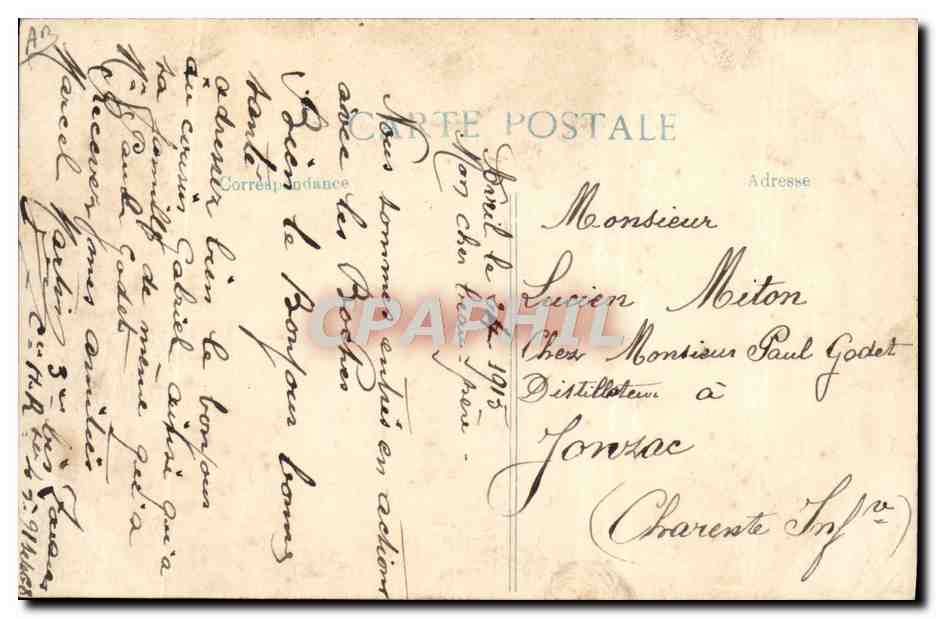 CARTE POSTALE
Correspondance
Adresse
Avril le 1915
Mon cher beau-frère
Nous sommes entrés en action
avec les Boches
Bien le Bonjour bonne
santé
adresser bien le bonjour
au cousin Gabriel ainsi qu'a
sa famille de même qu'a
Mr Paul Godet
Recever mes amitiés
Marcel Martin 3e bis Zouaves
Monsieur
Lucien Miton
Chez Monsieur Paul Godet
Distillateur à
Jonzac
(Charente Infre)
CPAPHIL